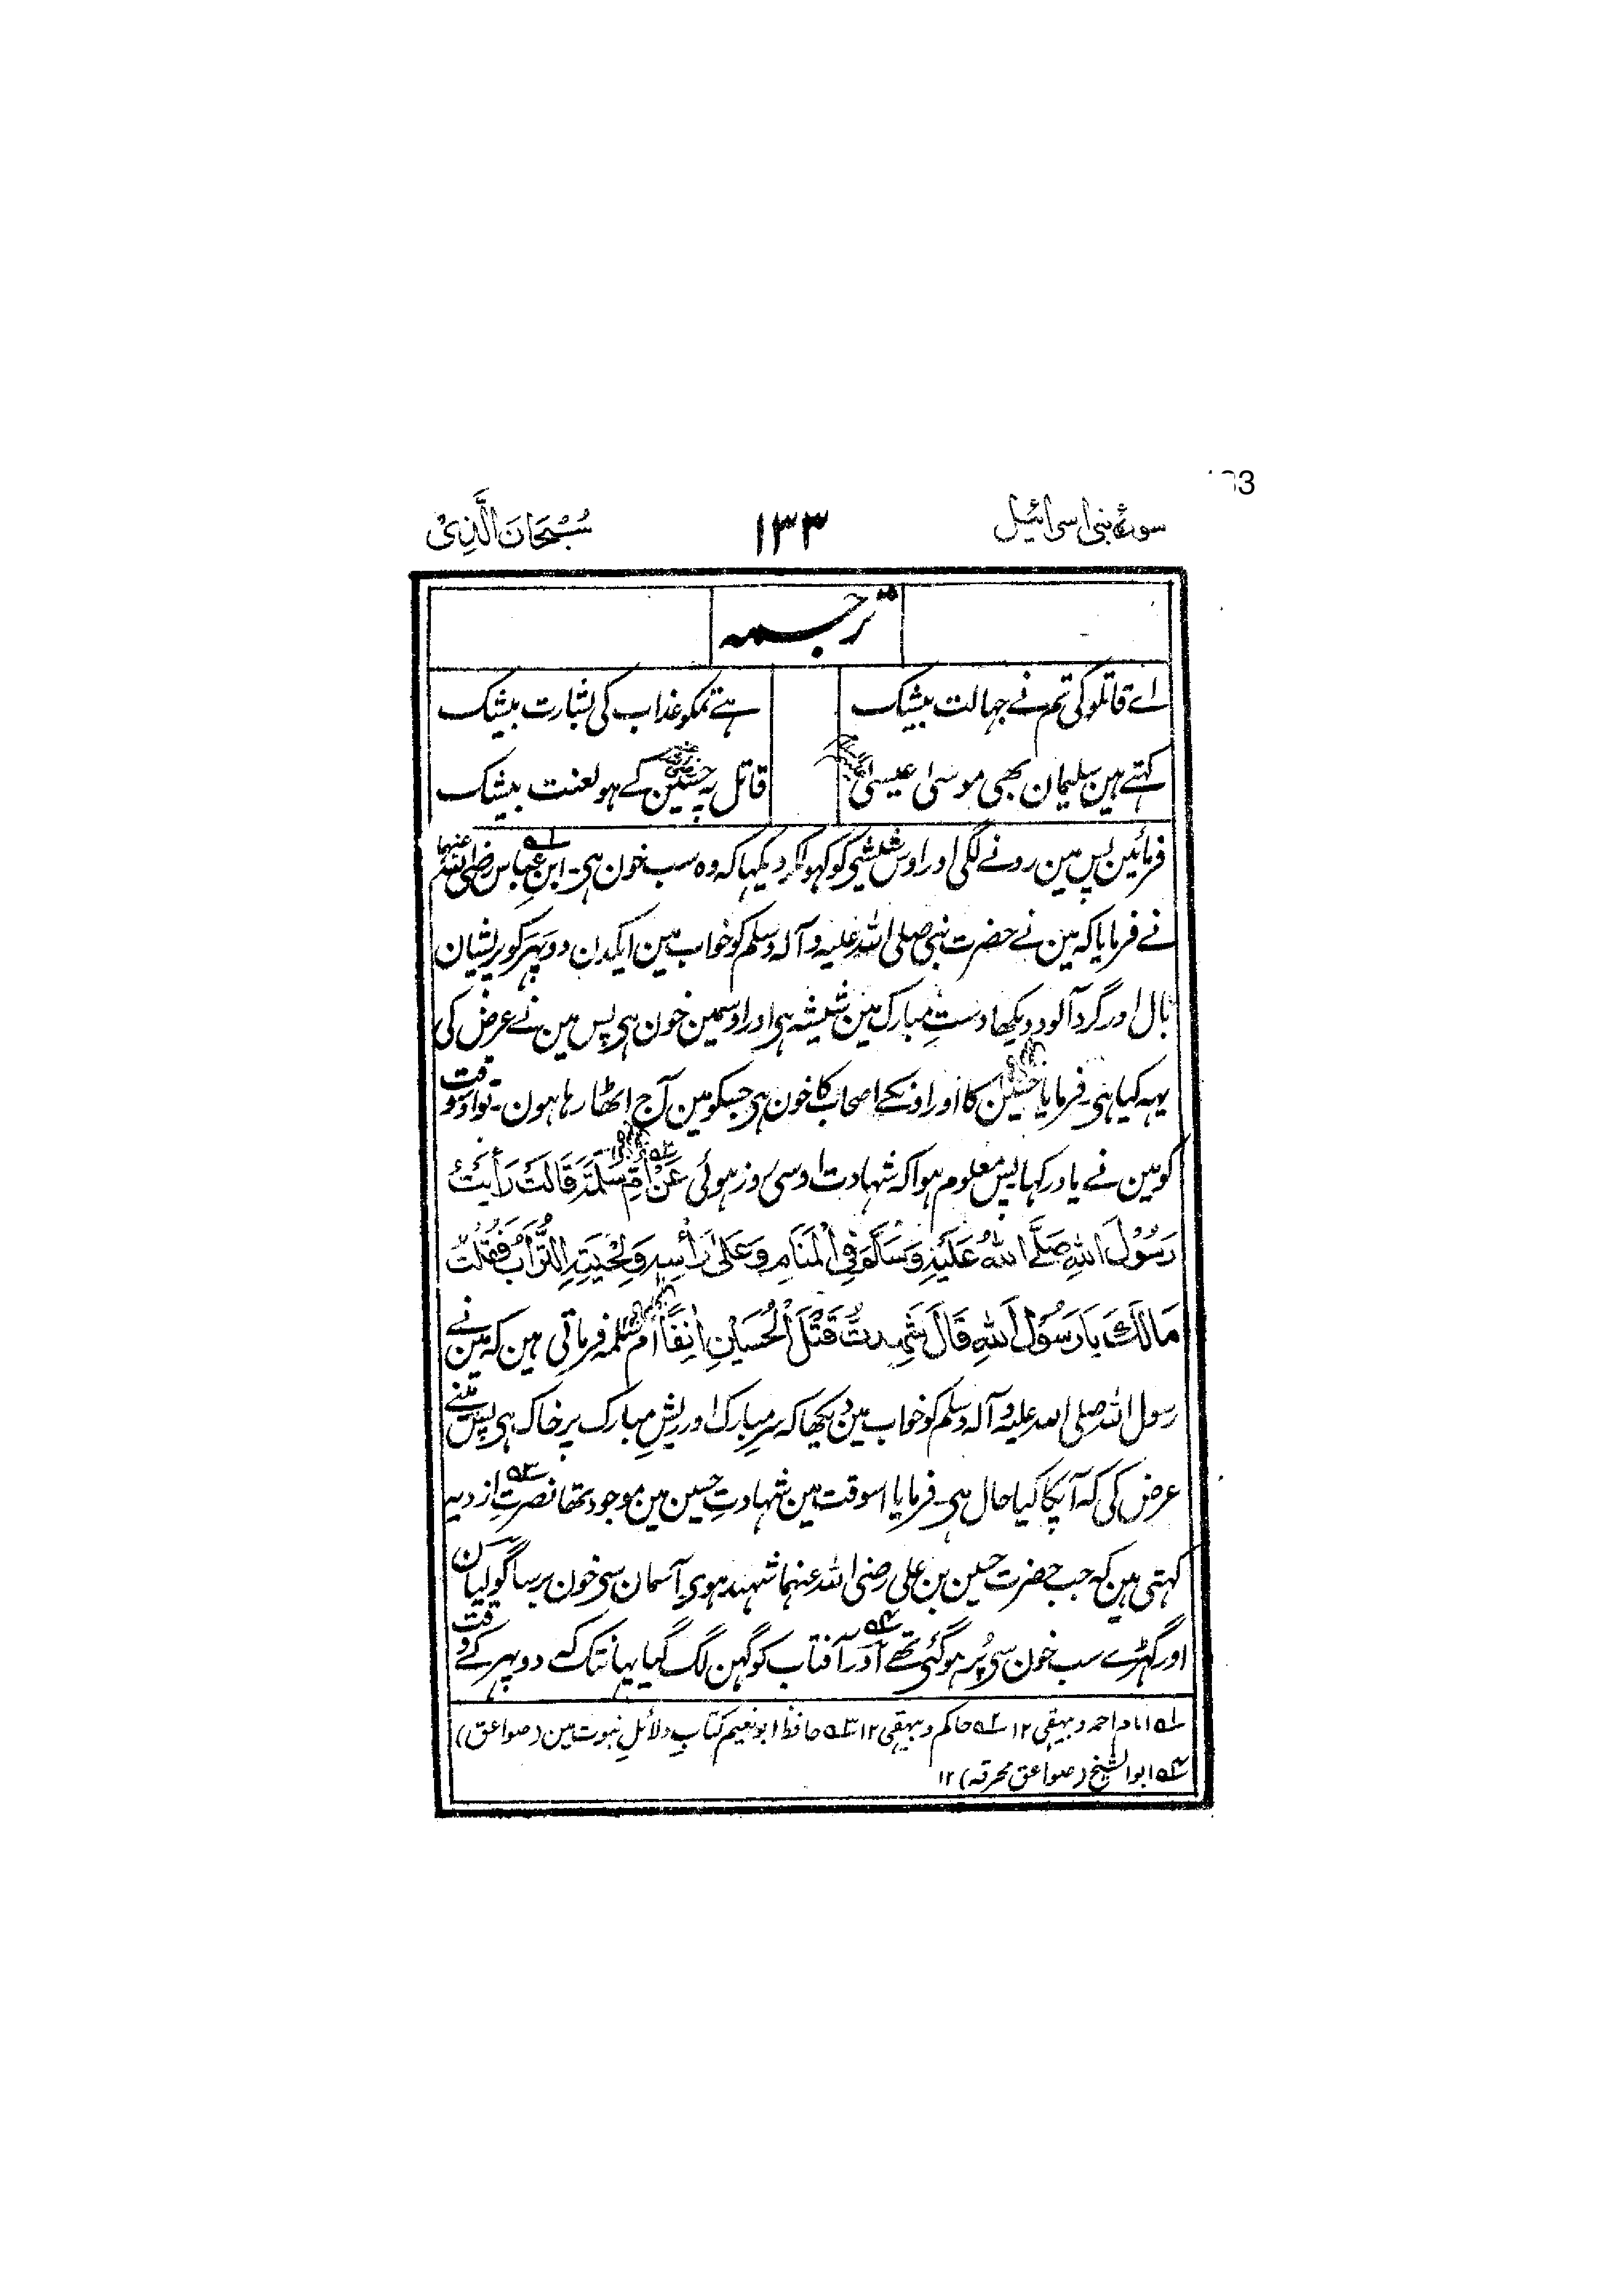 133
سورۂ بنی اسرائیل
۱۳۳
سُبْحَانَ الَّذِیْ
ترجمہ
اے قاتلو کی تم نے جہالت بیشک ہے تمکو عذاب کی بشارت بیشک
کہتے ہین سلیمان بھی موسیٰ عیسیٰ قاتل پہ حسین کے ہو لعنت بیشک
فرمائین پس مین رونے لگی اور اوس شیشی کو کہولکر دیکہا کہ وہ سب خون ہی۔ ابنِ عباس رضی اللہ عنہما
نے فرمایا کہ مین نے حضرت نبی صلی اللہ علیہ و آلہ وسلم کو خواب مین ایکدن دوپہر کو پریشان
بال اور گرد آلود دیکھا دستِ مبارک مین شیشہ ہی اور اوسمین خون ہی پس مین نے عرض کی
یہہ کیا ہی۔ فرمایا حسین کا اور اونکے اصحاب کا خون ہی جسکو مین آج اٹھا رہا ہون۔ تو اوسوقت
کو مین نے یاد رکہا پس معلوم ہوا کہ شہادت اوسی روز ہوئی عَنْ اُمِّ سَلَمَةَ قَالَتْ رَأَیْتُ
رَسُوْلَ اللّٰهِ صَلَّے اللّٰهُ عَلَیْهِ وَسَلَّمَ فِی الْمَنَامِ وَعَلٰی رَأْسِهٖ وَلِحْیَتِهِ التُّرَابُ فَقُلْتُ
مَالَكَ یَا رَسُوْلَ اللّٰهِ قَالَ شَهِدتُّ قَتْلَ الْحُسَیْنِ اٰنِفًا اُم سلمہ فرماتی ہین کہ مین نے
رسول اللہ صلی اللہ علیہ و آلہ وسلم کو خواب مین دیکھا کہ سرِ مبارک اور ریشِ مبارک پر خاک ہی پس مینے
عرض کی کہ آپکا کیا حال ہی۔ فرمایا اسوقت مین شہادتِ حسین مین موجود تھا نصرتِ ازدیہ
کہتی ہین کہ جب حضرت حسین بن علی رضی اللہ عنہما شہید ہوی آسمان سی خون برسا گولیان
اور گہڑے سب خون سی پُر ہوگئی تھے اور آفتاب کو گہن لگ گیا یہانتک کہ دوپہر کے وقت
۱؎ امام احمد و بیہقی ۱۲ ۲؎ حاکم و بیہقی ۱۲ ۳؎ حافظ ابو نعیم کتابِ دلائلِ نبوت مین (صواعق)
۴؎ ابو الشیخ (صواعق محرقہ) ۱۲